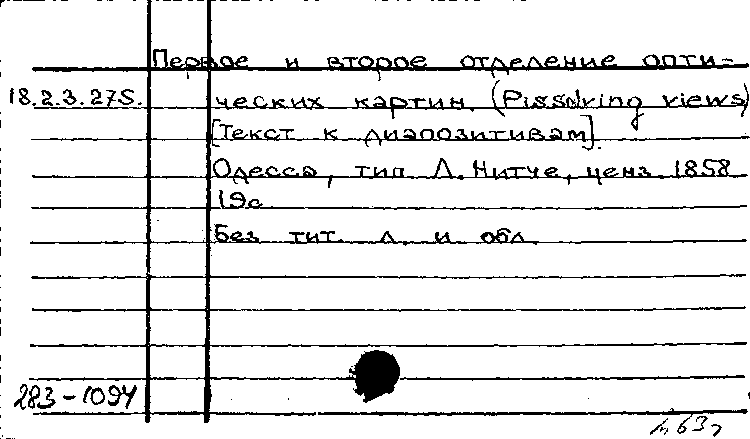 Первое и второе отделение опти-
18.2.3.275. ческих картин. (Pissolving views)
[Текст к диапозитивам].
Одесса, тип. Л. Нитче, ценз. 1858
19с.
Без тит. л. и обл.
283-1094